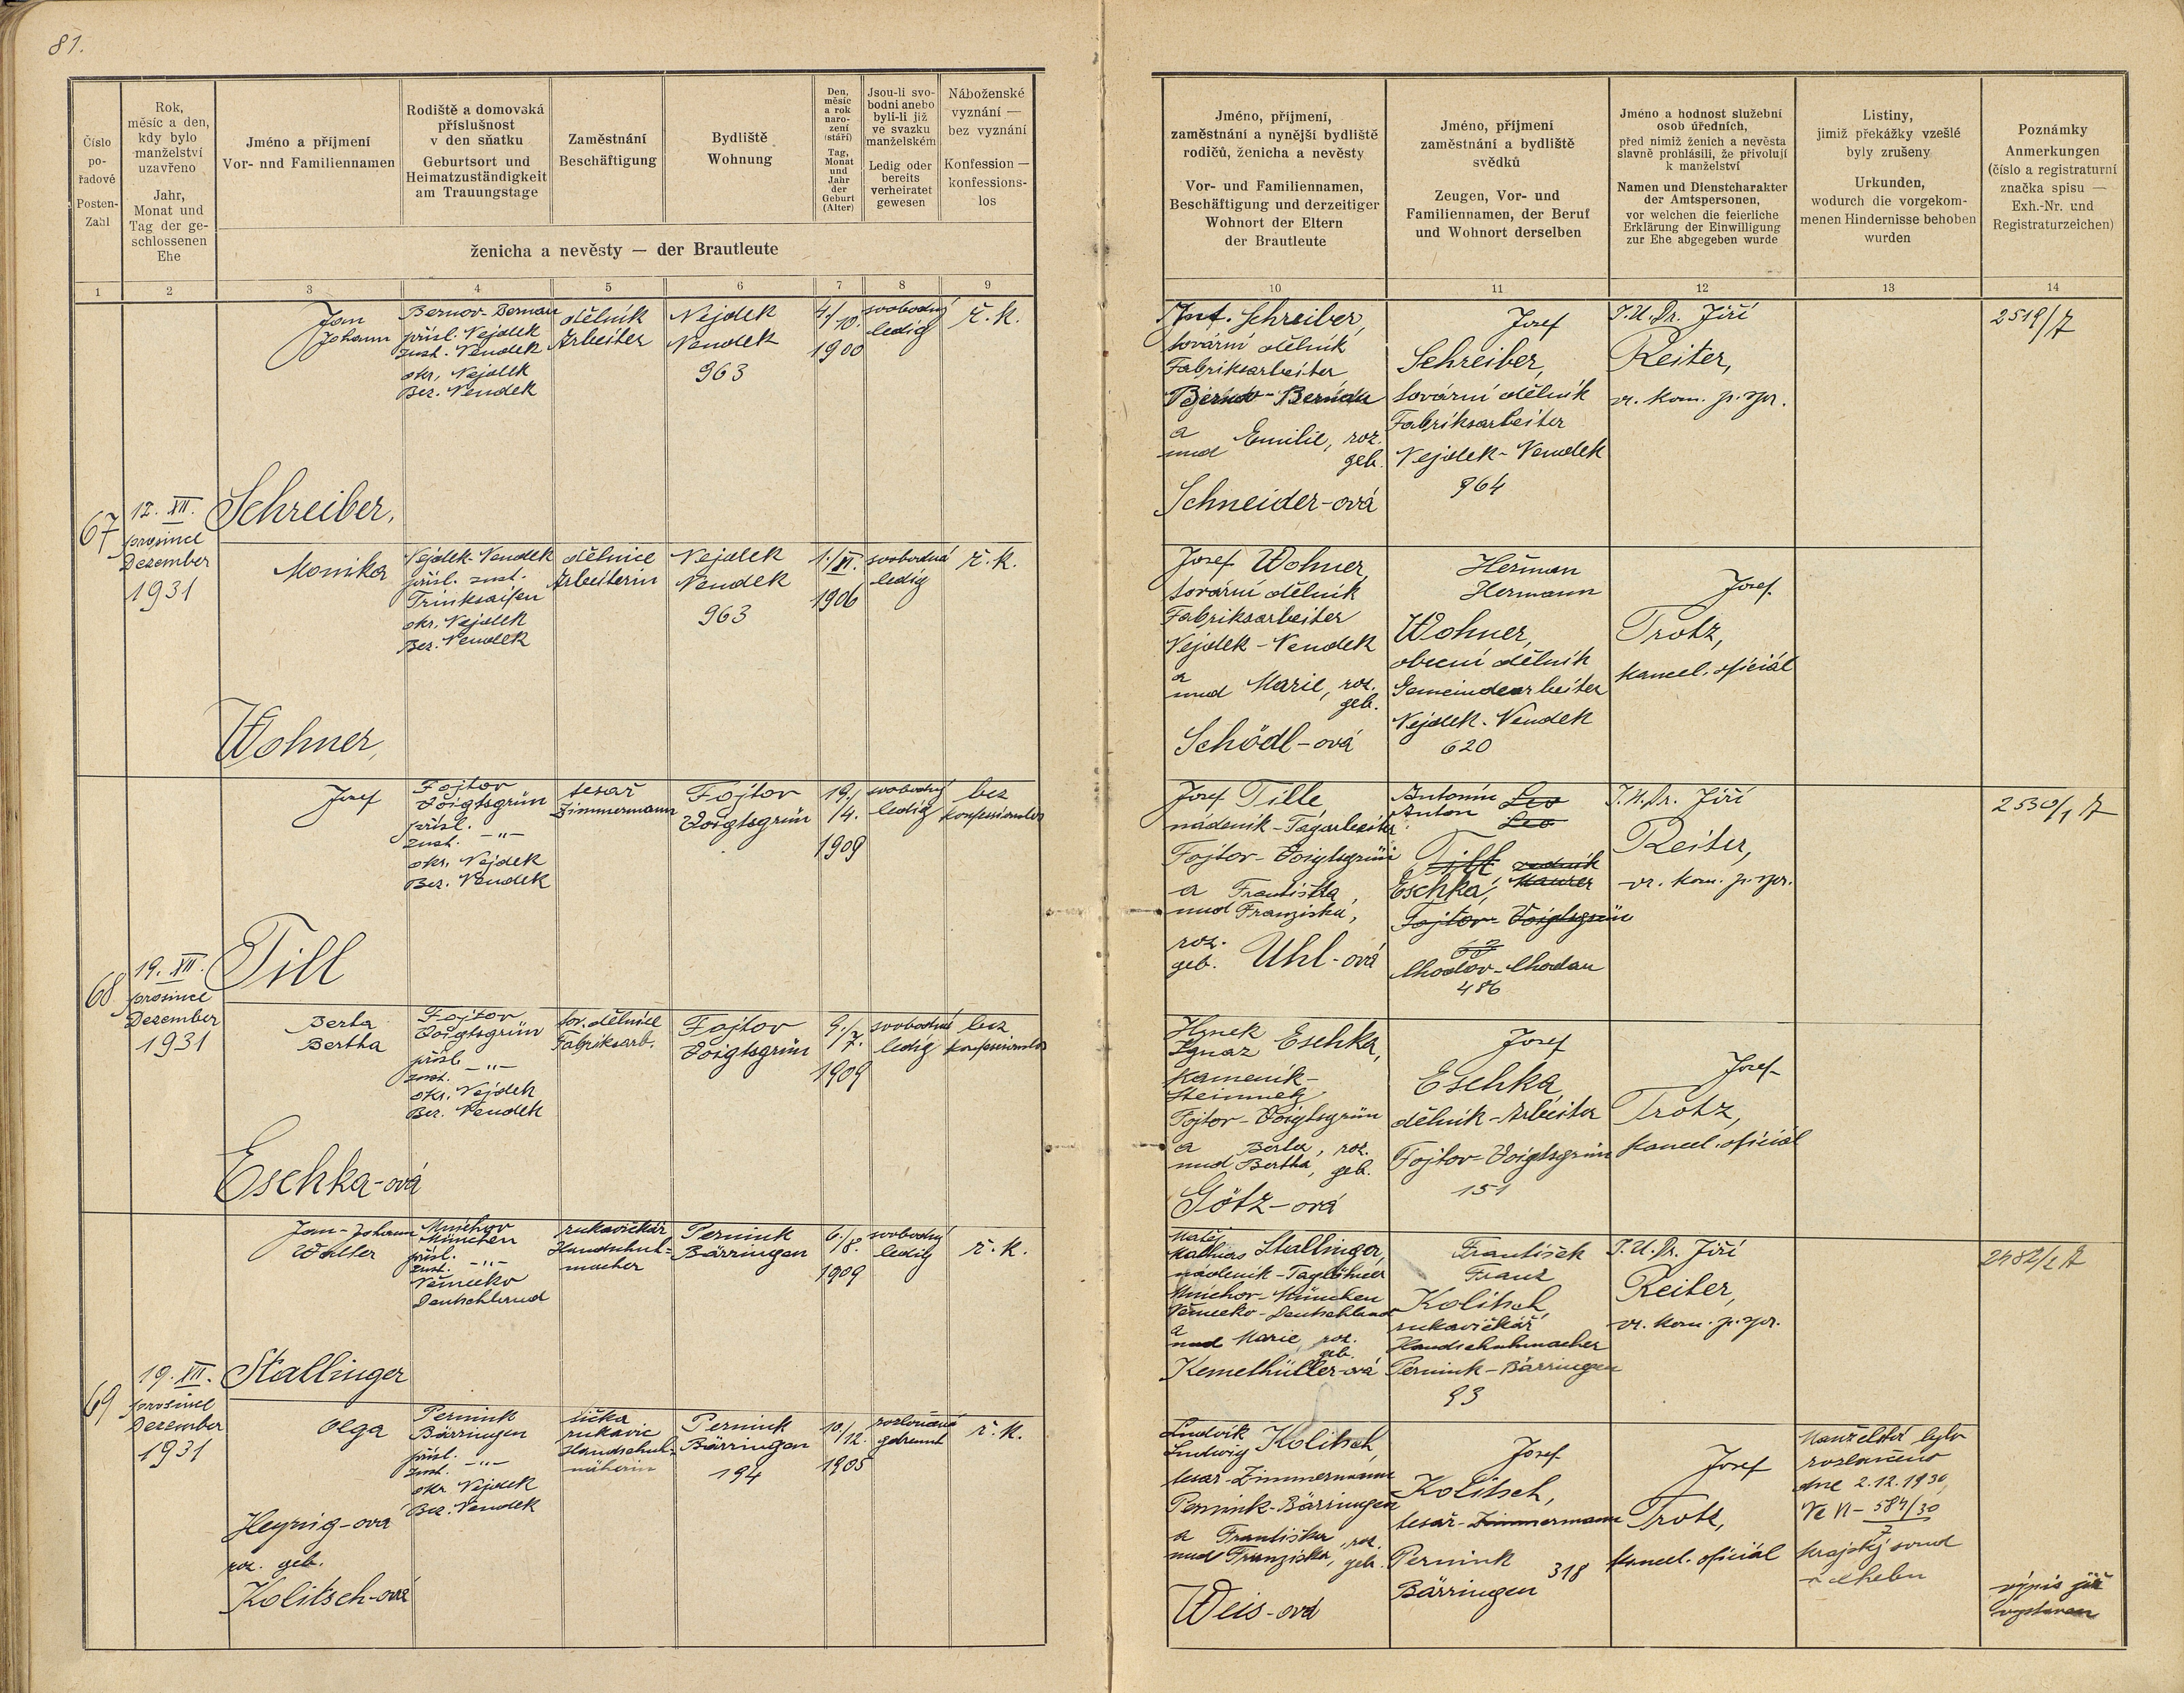 81.
Číslo
po-
řadové
Posten-
Zahl
Rok,
měsíc a den,
kdy bylo
manželství
uzavřeno
Jahr,
Monat und
Tag der ge-
schlossenen
Ehe
Jméno a příjmení
Vor- und Familiennamen
Rodiště a domovská
příslušnost
v den sňatku
Geburtsort und
Heimatzuständigkeit
am Trauungstage
Zaměstnání
Beschäftigung
Bydliště
Wohnung
Den,
měsíc
a rok
naro-
zení
(stáří)
Tag,
Monat
und
Jahr
der
Geburt
(Alter)
Jsou-li svo-
bodni anebo
byli-li již
ve svazku
manželském
Ledig oder
bereits
verheiratet
gewesen
Náboženské
vyznání —
bez vyznání
Konfession —
konfessions-
los
ženicha a nevěsty — der Brautleute
1 2 3 4 5 6 7 8 9
67
12. XII.
prosinec
Dezember
1931
Jan
Johann
Schreiber,
Bernov-Bernau
přísl. Nejdek
zust. Neudek
okr. Nejdek
Bez. Neudek
dělník
Arbeiter
Nejdek
Neudek
963
4/10.
1900
svobodný
ledig
ř. k.
Monika
Wohner,
Nejdek-Neudek
přísl. zust.
Trinksaifen
okr. Nejdek
Bez. Neudek
dělnice
Arbeiterin
Nejdek
Neudek
963
1./XI.
1906
svobodná
ledig
ř. k.
68
19. XII.
prosinec
Dezember
1931
Josef
Till
Fojtov
Voigtsgrün
přísl.
zust. -"-
okr. Nejdek
Bez. Neudek
tesař
Zimmermann
Fojtov
Voigtsgrün
19./
/4.
1909
svobodný
ledig
bez
konfessionslos
Berta
Bertha
Eschka-ová
Fojtov
Voigtsgrün
přísl. -"-
zust.
okr. Nejdek
Bez. Neudek
tov. dělnice
Fabriksarb.
Fojtov
Voigtsgrün
9./
/7.
1909
svobodná
ledig
bez
konfessionslos
69
19. XII.
prosinec
Dezember
1931
Jan-Johann
Walter
Stallinger
Mnichov
München
přísl.
zust. -"-
Německo
Deutschland
rukavičkář
Handschuh-
macher
Pernink
Bärringen
6./
/8.
1909
svobodný
ledig
ř. k.
Olga
Heynig-ová
roz. geb.
Kolitsch-ová
Pernink
Bärringen
přísl.
zust. -"-
okr. Nejdek
Bez. Neudek
šička
rukavic
Handschuh-
näherin
Pernink
Bärringen
194
10/
/12.
1905
rozloučená
getrennt
ř. k.
Jméno, příjmení,
zaměstnání a nynější bydliště
rodičů, ženicha a nevěsty
Vor- und Familiennamen,
Beschäftigung und derzeitiger
Wohnort der Eltern
der Brautleute
Jméno, příjmení
zaměstnání a bydliště
svědků
Zeugen, Vor- und
Familiennamen, der Beruf
und Wohnort derselben
Jméno a hodnost služební
osob úředních,
před nimiž ženich a nevěsta
slavně prohlásili, že přivolují
k manželství
Namen und Dienstcharakter
der Amtspersonen,
vor welchen die feierliche
Erklärung der Einwilligung
zur Ehe abgegeben wurde
Listiny,
jimiž překážky vzešlé
byly zrušeny
Urkunden,
wodurch die vorgekom-
menen Hindernisse behoben
wurden
Poznámky
Anmerkungen
(číslo a registraturní
značka spisu —
Exh.-Nr. und
Registraturzeichen)
10 11 12 13 14
Ant. Schreiber,
tovární dělník
Fabriksarbeiter
Bernov-Bernau
a
und Emilie, roz.
geb.
Schneider-ová
Josef
Schreiber,
tovární dělník
Fabriksarbeiter
Nejdek-Neudek
964
J.U.Dr. Jiří
Reiter,
vr. kom. p. spr.
2519/7
Josef Wohner,
tovární dělník
Fabriksarbeiter
Nejdek-Neudek
a
und Marie, roz.
geb.
Schödl-ová
Heřman
Hermann
Wohner,
obecní dělník
Gemeindearbeiter
Nejdek-Neudek
620
Josef
Trotz,
kancel. oficiál
Josef Tille,
nádeník-Tagarbeiter
Fojtov-Voigtsgrün
a Františka,
und Franziska,
roz.
geb. Uhl-ová
Antonín Leo
Anton Leo
Till zedník
Eschka, Maurer
Fojtov-Voigtsgrün
Chodov-Chodau
486
J.U.Dr. Jiří
Reiter,
vr. kom. p. spr.
2530/1 A
Hynek
Ignaz Eschka,
kameník-
Steinmetz
Fojtov-Voigtsgrün
a Berta, roz.
und Bertha, geb.
Götz-ová
Josef
Eschka
dělník-Arbeiter
Fojtov-Voigtsgrün
151
Josef
Trotz,
kancel. oficiál
Matěj
Mathias Stallinger,
nádeník-Taglöhner
Mnichov-München
Německo-Deutschland
a
und Marie roz.
geb.
Kemethüller-ová
František
Franz
Kolitsch,
rukavičkář
Handschuhmacher
Pernink-Bärringen
93
J.U.Dr. Jiří
Reiter,
vr. kom. p. spr.
Ludvík
Ludwig Kolitsch,
tesař-Zimmermann
Pernink-Bärringen
a Františka, roz.
und Franziska, geb.
Weis-ová
Josef
Kolitsch,
tesař-Zimmermann
Pernink 318
Bärringen
Josef
Trotz,
kancel. oficiál
Manželství bylo
rozloučeno
dne 2.12.1930,
krajský soud
v Chebu
výpis již
vystaven